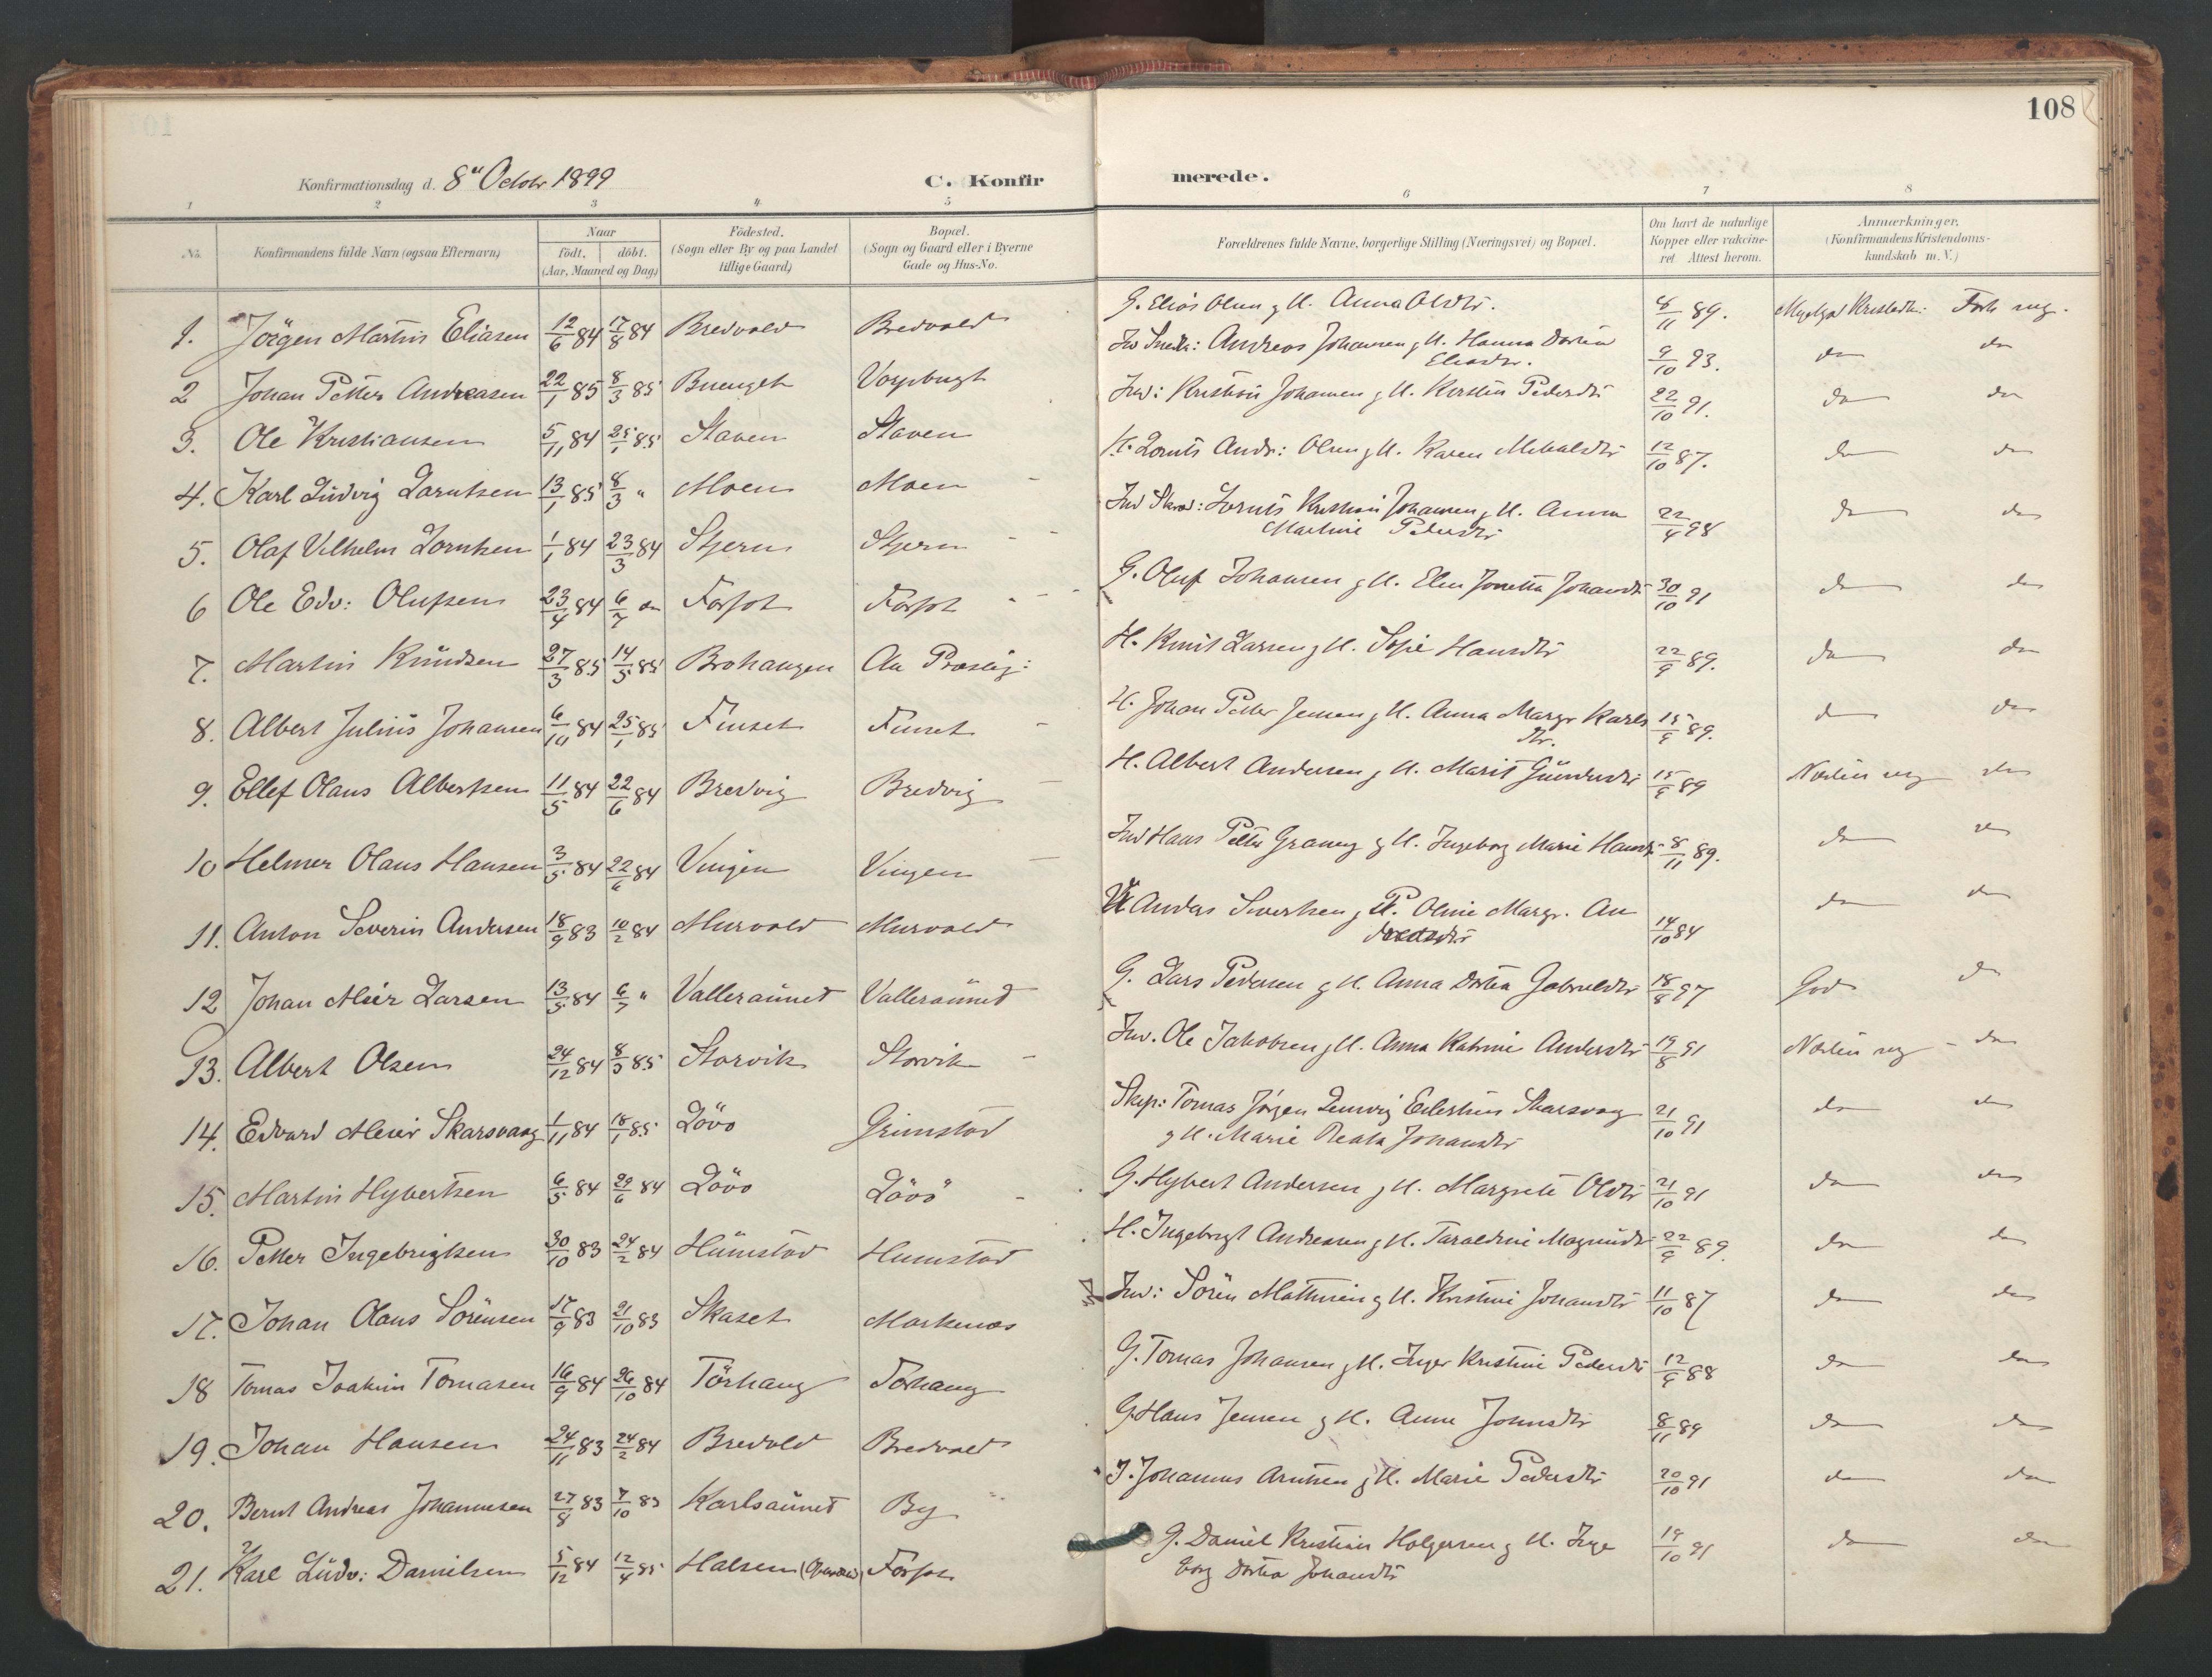 108
Konfirmationsdag d. 8de Octobr 1899
C. Konfirmerede.
1 2 3 4 5 6 7 8
No. Konfirmandens fulde Navn (ogsaa Efternavn) Naar födt, döbt. (Aar, Maaned og Dag) Födested. (Sogn eller By og paa Landet tillige Gaard) Bopæl. (Sogn og Gaard eller i Byerne Gade og Hus-No. Forældrenes fulde Navne, borgerlige Stilling (Næringsvei) og Bopæl. Om havt de naturlige Kopper eller vaccineret Attest herom. Anmærkninger, (Konfirmandens Kristendomskundskab m. V.)
1. Jörgen Martin Eliasen 12/6 84 17/8 84 Bredvold Bredvold G. Elias Olsen g H. Anna Olsdtr. 8/11 89. Kristdk:
2 Johan Petter Andreasen 22/1 85 8/3 85 Andreas Johansen g H. Hanna Dortea Eliasdtr. 9/10 93. do do
3. Ole Kristiansen 5/11 84 25/1 85 Staven Staven Ind: Kristian Johansen g H. Kirstin Pedersdtr 22/10 91. do do
4. Karl Ludvig Larntsen 13/1 85 8/3 " Moen Moen H. Lornts Andr: Olsen g H. Karen Mikalsdtr 12/10 87. do do
5. Olaf Vilhelm Lorntsen 1/1 84 23/3 84 Stjern Stjern Lornts Kristian Johansen g H. Anna Martine Pedersdtr 22/4 98 do do
6 Ole Edv: Olufsen 23/4 84 6/7 do Forfot Forfot G. Oluf Johansen g H. Elen Jonetta Johansdtr 30/10 91 do do
7. Martin Knudsen 27/3 85 14/5 85 Brohaugen Aa Prestg: H. Knut Larsen g H. Sofie Hansdtr 22/9 89. do do
8. Albert Julius Johansen 6/11 84 25/1 85 Finset Finset H. Johan Petter Jensen g H. Anna Margr Karlsdtr. 15/9 89. do do
9. Ellef Olaus Albertsen 11/5 84 22/6 84 Bredvig Bredvig H. Albert Andersen g H. Marit Gundersdtr 15/9 89 do
10 Helmer Olaus Hansen 3/5 84 22/6 84 Vingen Vingen Ind Hans Petter g H. Ingeborg Marie Hansdtr 8/11 89. do do
11. Anton Severin Andersen 18/9 83 10/2 84 Murvold Murvold Anders Sivertsen g P. Oline Margr. 14/10 84 do do
12 Johan Meier Larsen 13/5 84 6/7 " Valleraunet Valleraunet G. Lars Pedersen g H. Anna Dortea Gabrielsdtr 18/8 97 God do
13. Albert Olsen 24/12 84 8/3 85 Storvik Storvik Ind. Ole Jakobsen g H. Anna Katrine Andersdtr 19/8 91 do
14. Edvard Meier Skarsvaag 1/11 84 18/1 85 Lövö Grimstad Skip: Tomas Jörgen Skarsvaag g H. Marie Beata Johansdtr 21/10 91 do do
15. Martin Hybertsen 6/5 84 29/6 84 Lövö Lövö G. Hybert Andersen g H. Margrete Olsdtr 21/10 91 do do
16. Petter Ingebrigtsen 30/10 83 24/2 84 Humstad Humstad H. Ingebrigt Andreasen g H. Taraldine Magnusdtr 22/9 89. do do
17. Johan Olaus Sörensen 17/9 83 21/10 83 Skaset Markenæs Ind: Sören g H. Kristine Johansdtr 11/10 87 do do
18 Tomas Joakim Tomasen 16/9 84 26/10 84 Törhaug Torhaug G. Tomas Johansen g H. Inger Kristine Pedersdtr 12/9 88 do do
19. Johan Hansen 24/11 83 24/2 84 Bredvold Bredvold G. Hans Jensen g H. Anne Johnsdtr 8/11 89 do do
20. Bernt Andreas Johannesen 27/8 83 7/10 83 Karlsaunet By Johannes Arntsen g H. Marie Pedersdtr 20/10 91 do do
21. Karl Ludv: Danielsen 5/12 84 12/4 85 Halsen Forfot G. Daniel Kristian Holgersen g H. Ingeborg Dortea Johansdtr 19/10 91 do do